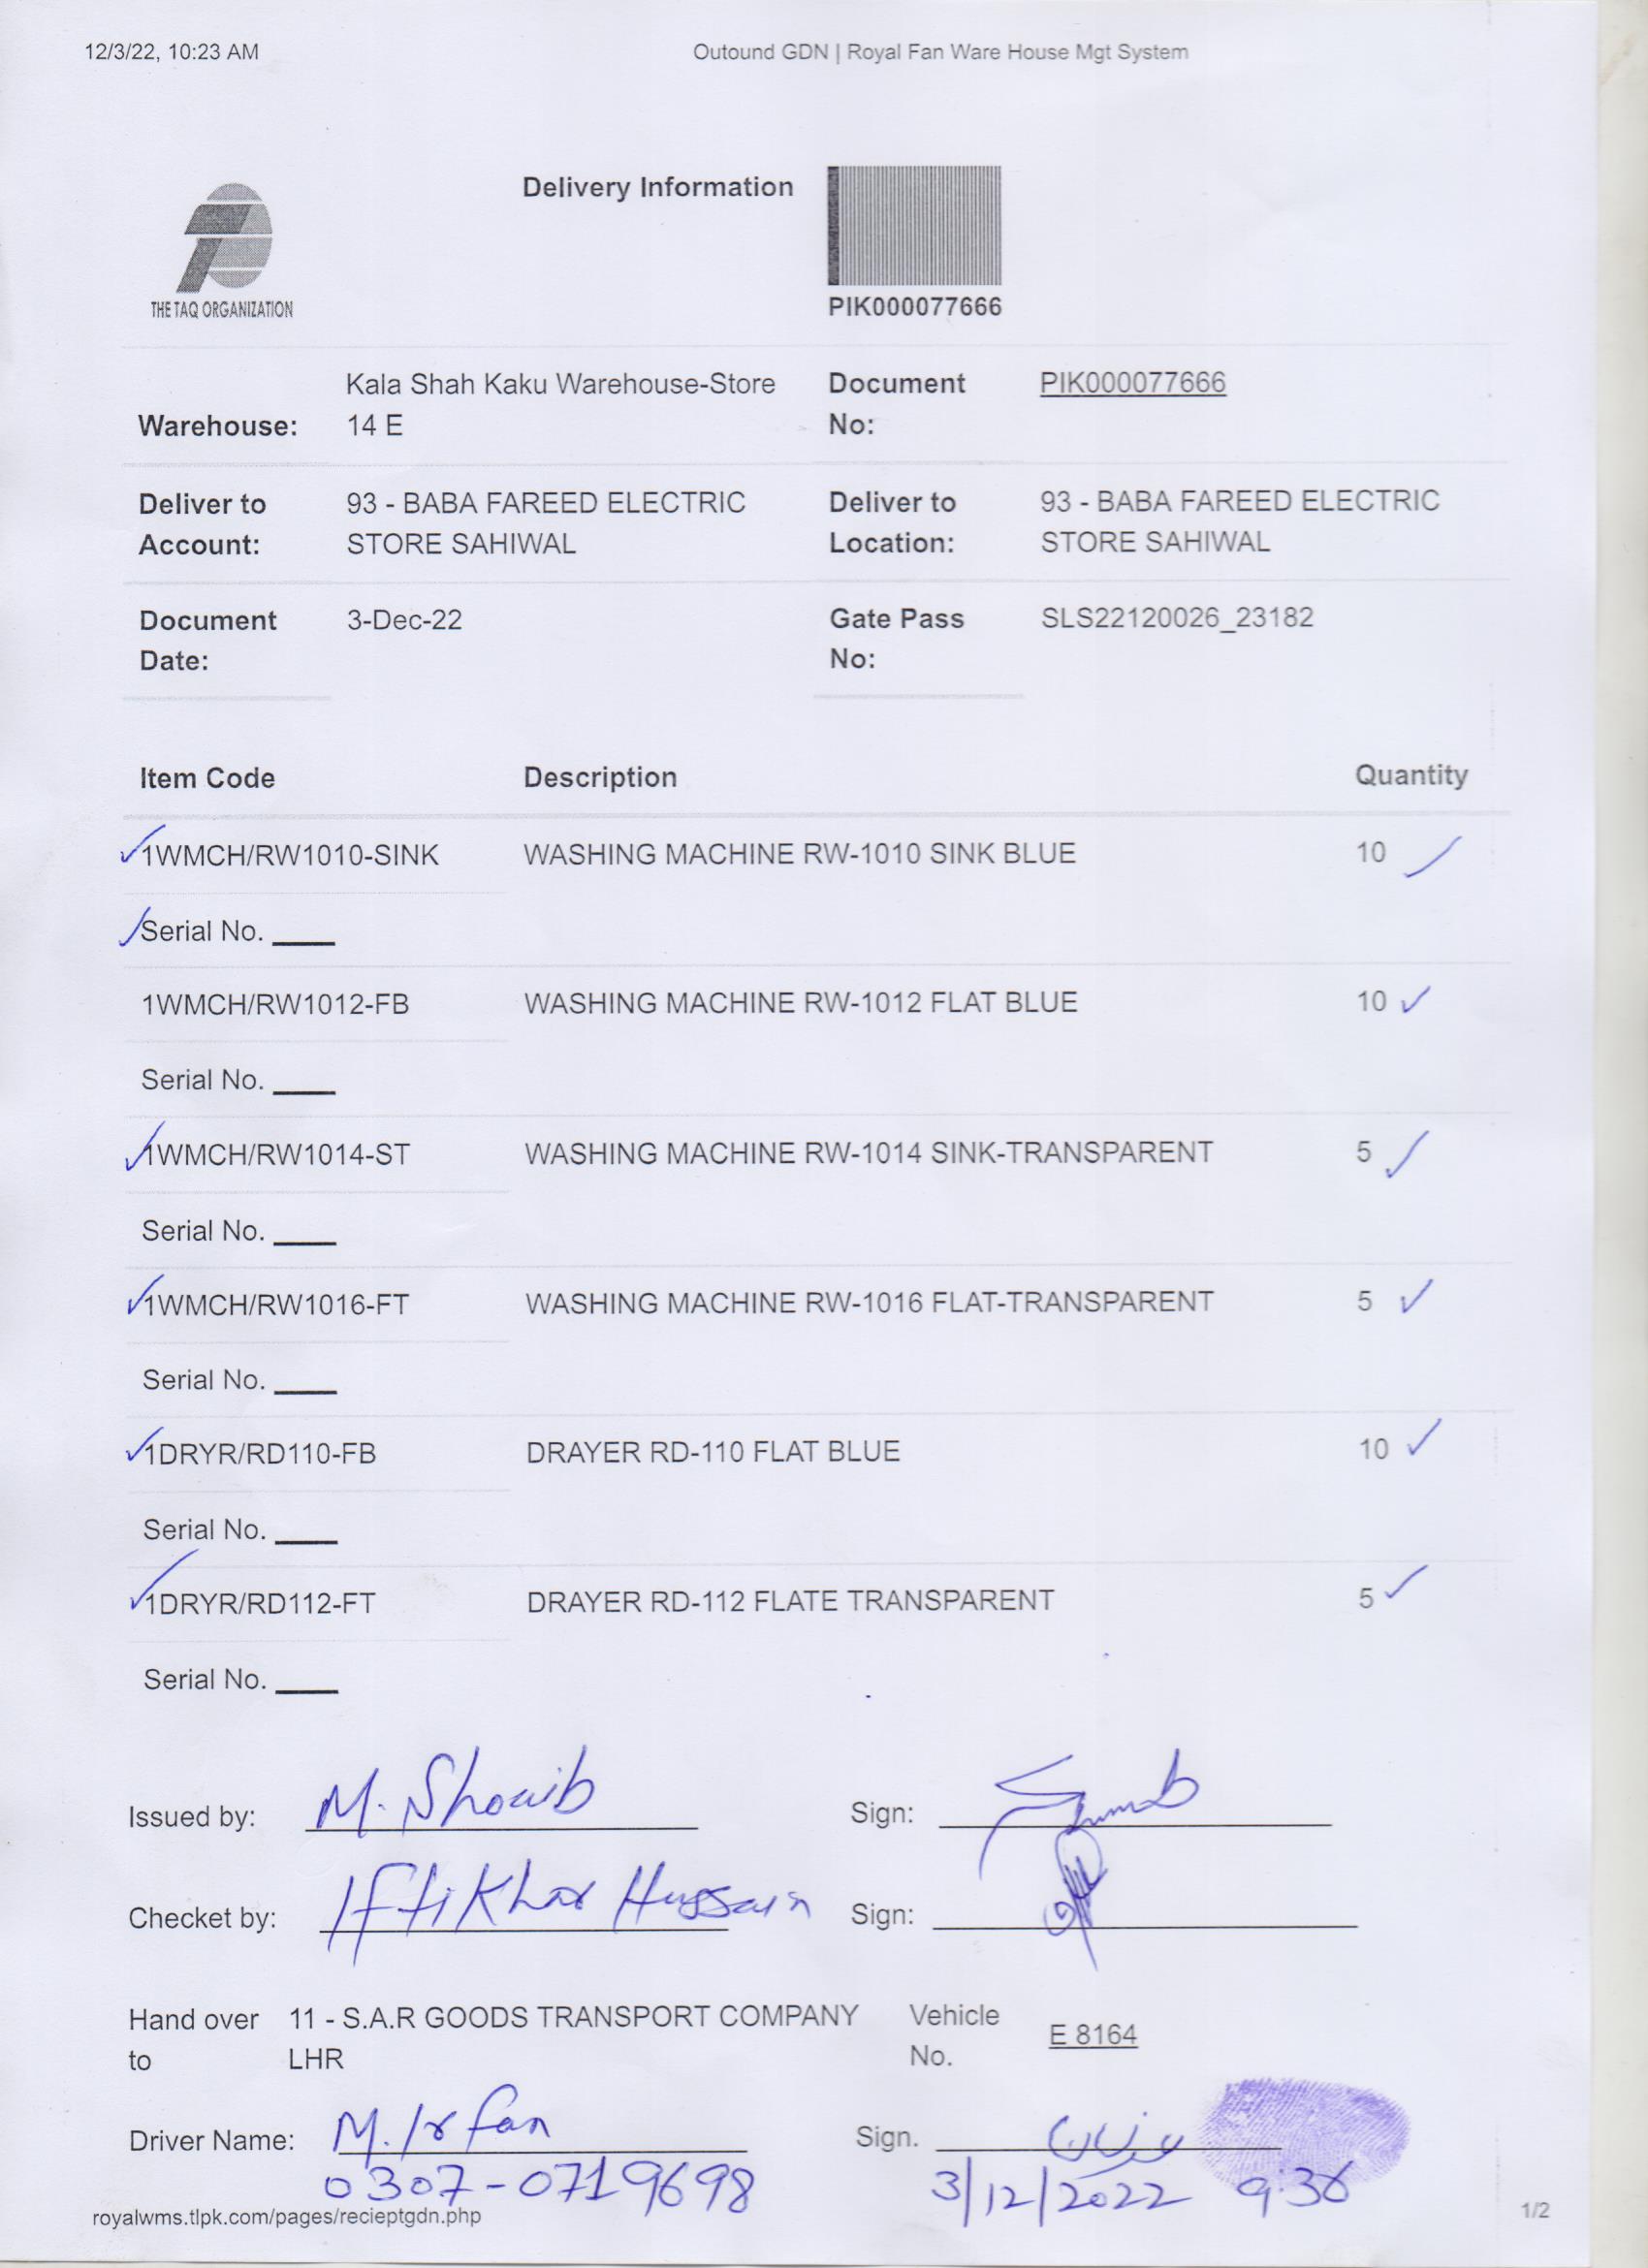 12/3/22, 10:23 AM Outound GDN | Royal Fan Ware House Mgt System
Delivery Information
THE TAQ ORGANIZATION
PIK000077666
Warehouse: Kala Shah Kaku Warehouse-Store 14 E
Document No: PIK000077666
Deliver to Account: 93 - BABA FAREED ELECTRIC STORE SAHIWAL
Deliver to Location: 93 - BABA FAREED ELECTRIC STORE SAHIWAL
Document Date: 3-Dec-22
Gate Pass No: SLS22120026_23182
Item Code Description Quantity
1WMCH/RW1010-SINK WASHING MACHINE RW-1010 SINK BLUE 10
Serial No. ____
1WMCH/RW1012-FB WASHING MACHINE RW-1012 FLAT BLUE 10
Serial No. ____
1WMCH/RW1014-ST WASHING MACHINE RW-1014 SINK-TRANSPARENT 5
Serial No. ____
1WMCH/RW1016-FT WASHING MACHINE RW-1016 FLAT-TRANSPARENT 5
Serial No. ____
1DRYR/RD110-FB DRAYER RD-110 FLAT BLUE 10
Serial No. ____
1DRYR/RD112-FT DRAYER RD-112 FLATE TRANSPARENT 5
Serial No. ____
Issued by: M. Shoaib Sign:
Checket by: Iftikhar Hussain Sign:
Hand over to 11 - S.A.R GOODS TRANSPORT COMPANY LHR
Vehicle No. E 8164
Driver Name: M. Irfan Sign.
0307-0719698 3/12/2022 9:36
royalwms.tlpk.com/pages/recieptgdn.php 1/2